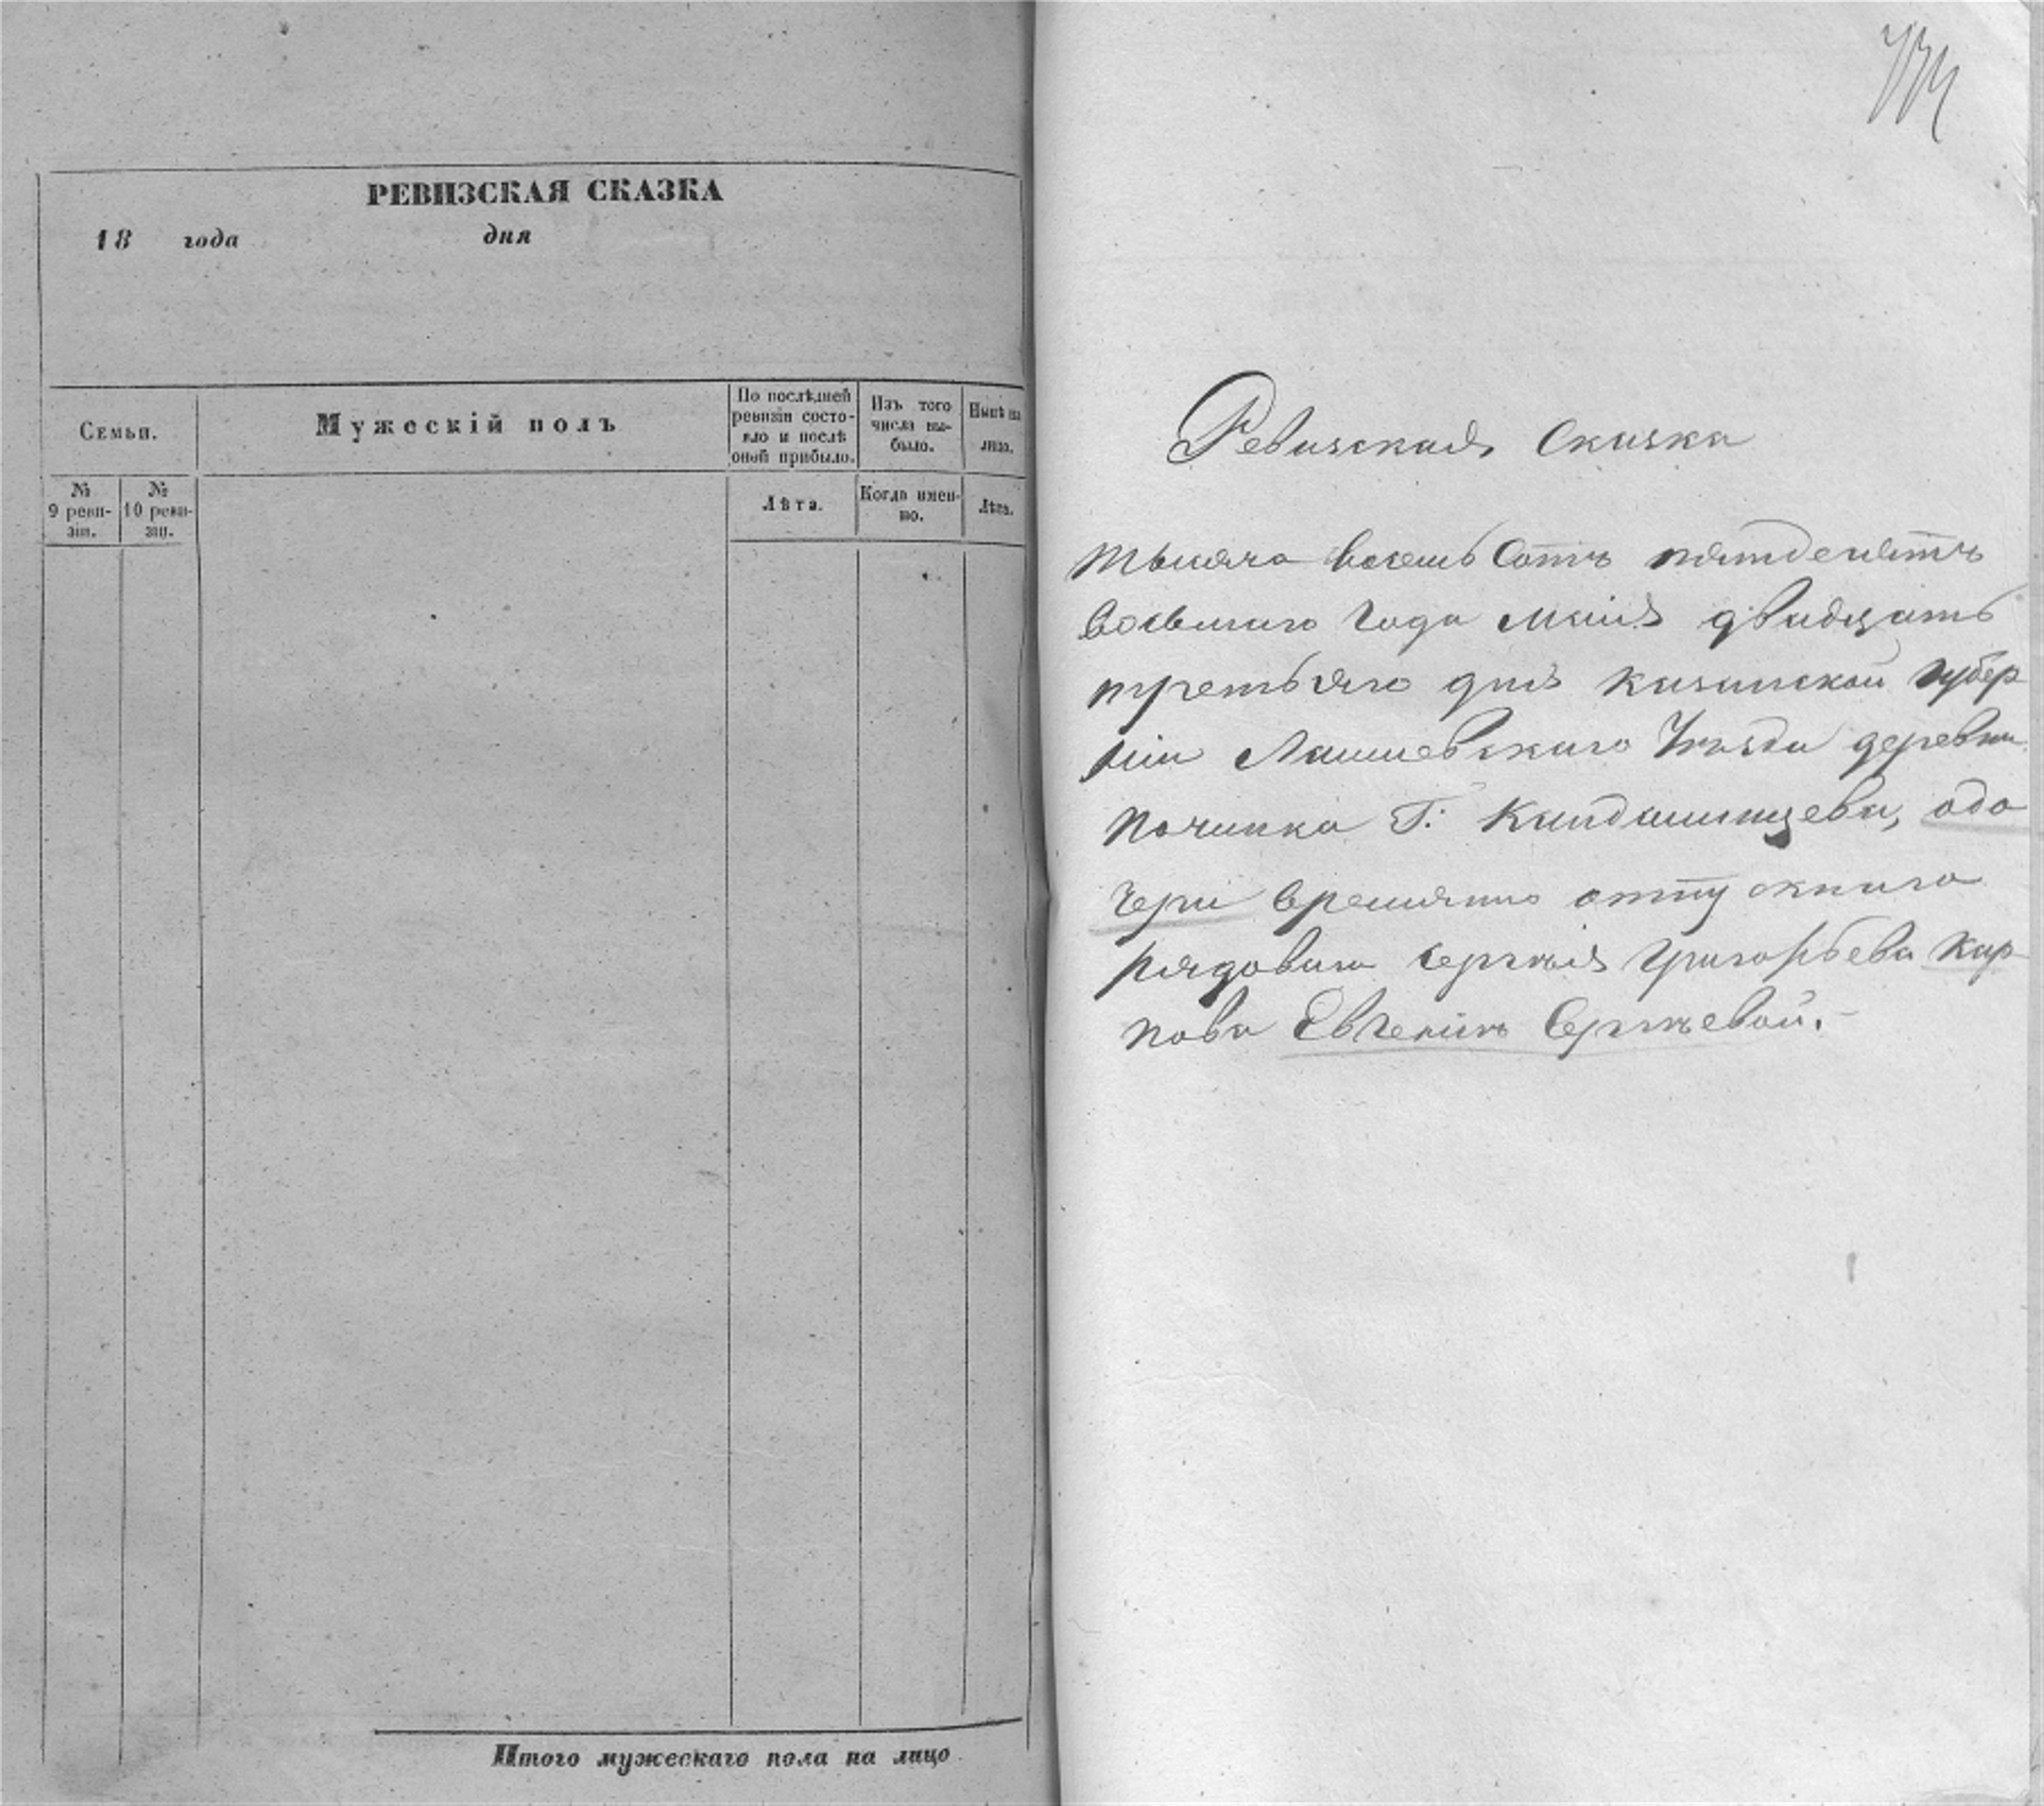 РЕВИЗСКАЯ СКАЗКА
18 года дня
Семьи.
Мужескій полъ
По послѣдней
ревизіи состо-
яло и послѣ
оной прибыло.
Изъ того
числа вы-
было.
Нынѣ на
лицо.
№
9 реви-
зіи.
№
10 реви-
зіи.
Лѣта.
Когда имен-
но.
Лѣта.
Итого мужескаго пола на лицо
Ревизская Сказка
тысяча восемь Сотъ пятдесятъ
восьмаго Года Маія двадцать
третьяго дня казанской губер
ніи Лаишевскаго Уѣзда деревни
починка Г: Кандалинцева, одо
чери времянно отпускнаго
рядоваго Сергѣя Григорьева Кар-
пова Евгеніи Сергѣевой.-